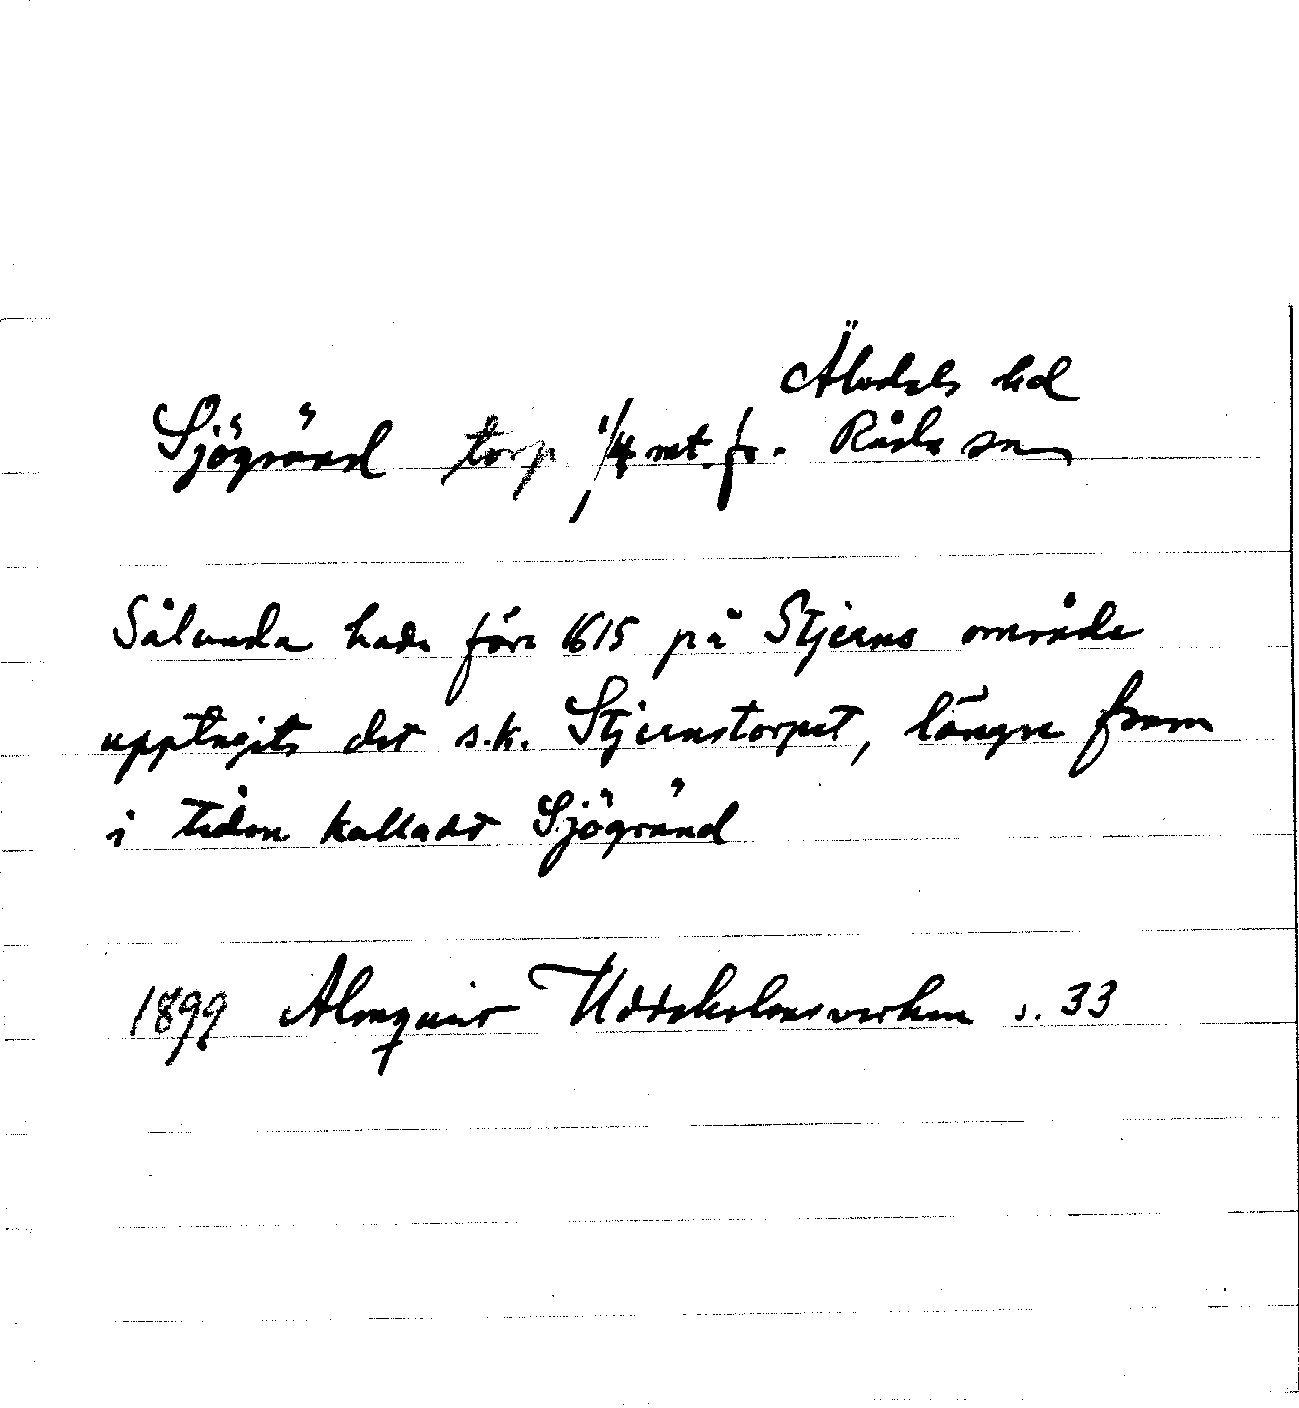 Älvdals hd
Sjögränd torp 1/4 mt. fr. Råda sn
Sålunda hade före 1615 på Stjerns område
upptagits det s.k. Stjernstorpet, längre fram
i tiden kalladt Sjögränd
1899 Almquist Uddeholmsverken s. 33